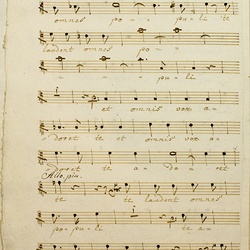 omnes po - - - puli te
laudent omnes po - -
- - - pu - li
et omnis vox a-
doret te et omnis vox a-
doret te a - do - ret
Allo. piu.
te te laudent omnes
po - pu - li te a -